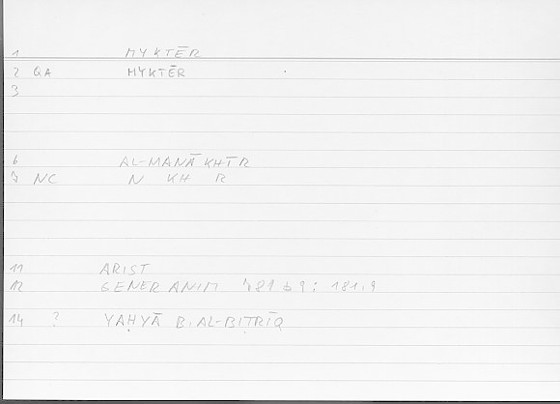 1 MYKTĒR
2 QA MYKTĒR
3
6 AL-MANĀKHĪR
7 NC N KH R
11 ARIST
12 GENER ANIM 781 b 9 : 181.9
14 ? YAḤYĀ B. AL-BIṬRĪQ